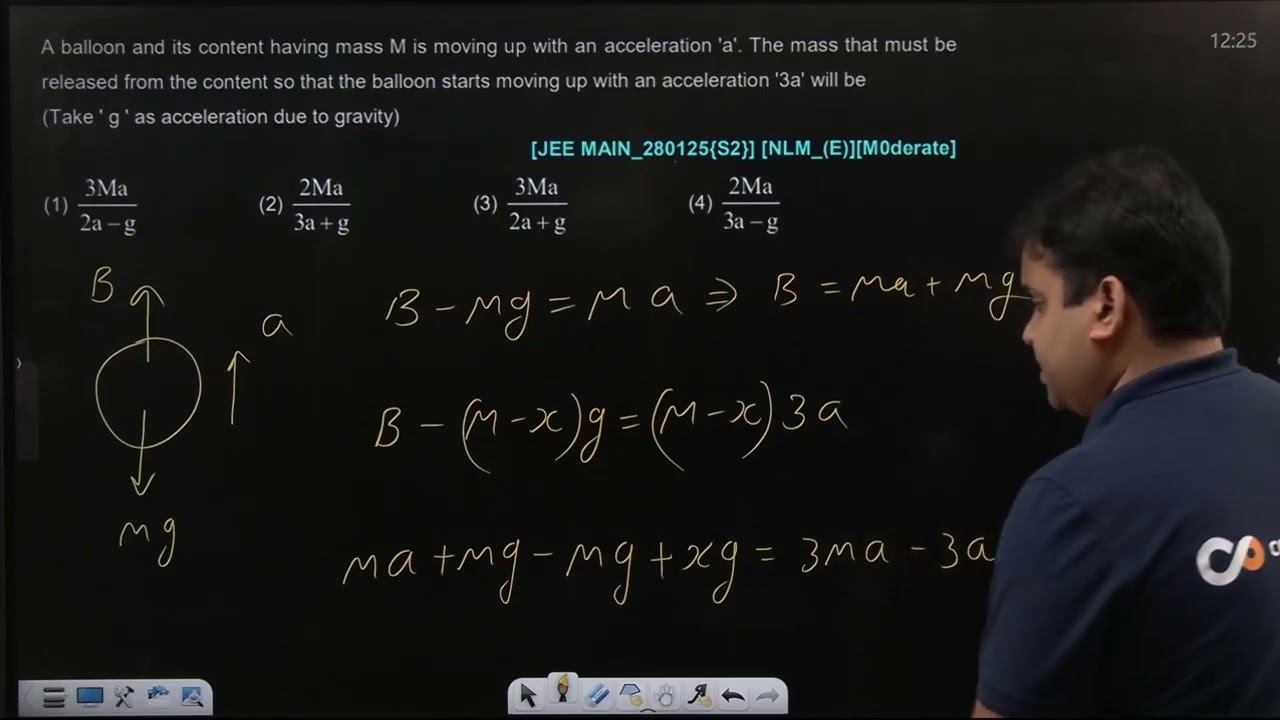 A balloon and its content having mass M is moving up with an acceleration 'a'. The mass that must be
12:25
released from the content so that the balloon starts moving up with an acceleration '3a' will be
(Take ' g ' as acceleration due to gravity)
[JEE MAIN_280125{S2}] [NLM_(E)][M0derate]
(1) 3Ma / 2a – g (2) 2Ma / 3a + g (3) 3Ma / 2a + g (4) 2Ma / 3a – g
B
a
B - Mg = Ma ⇒ B = Ma + Mg
B - (M - x)g = (M - x)3a
Mg
Ma + Mg - Mg + xg = 3Ma - 3a